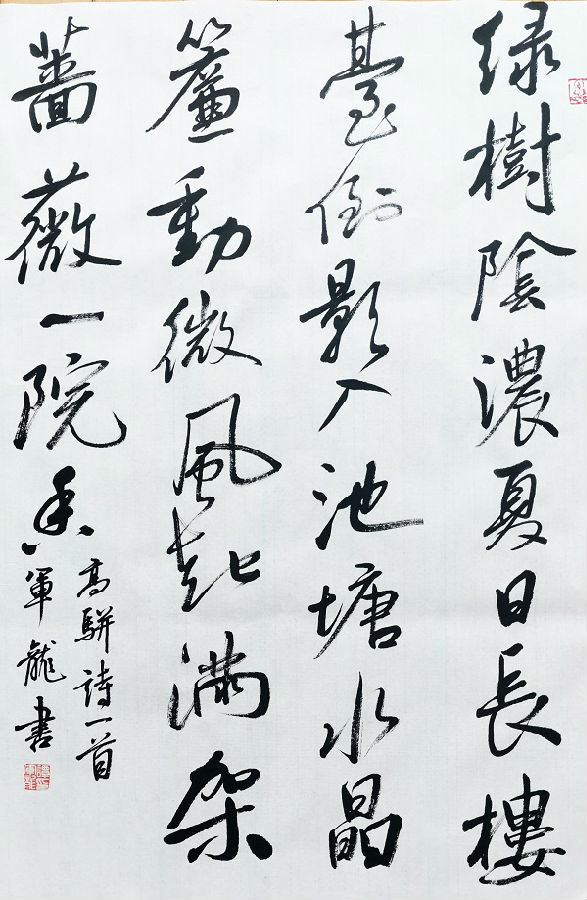 绿樹陰濃夏日長樓
臺倒影入池塘水晶
簾動微風起滿架
薔薇一院香
高駢詩一首
軍龍書